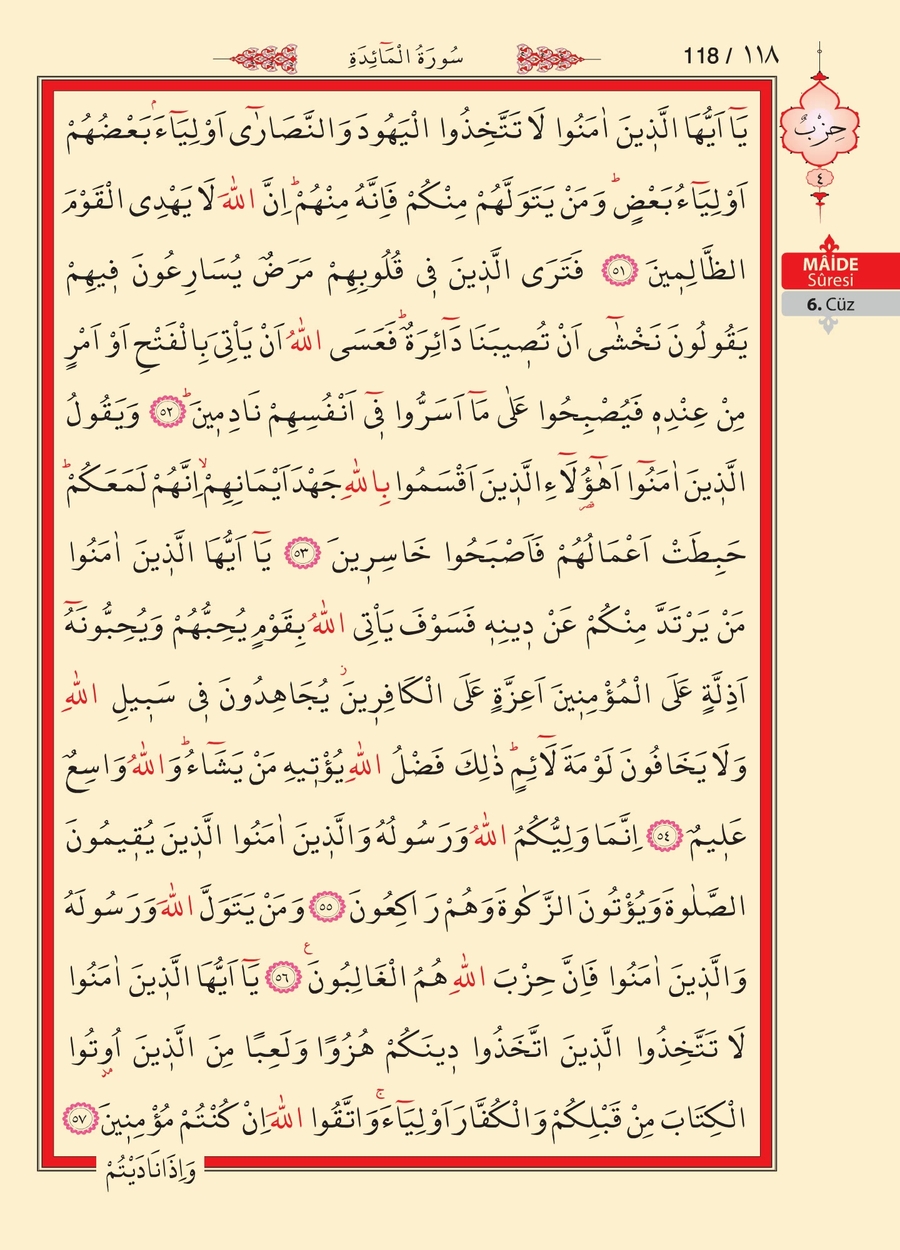 118 / ١١٨
سُورَةُ الْمَٓائِدَةِ
حِزْبٌ
٤
MÂİDE
Sûresi
6. Cüz
يَٓا اَيُّهَا الَّذ۪ينَ اٰمَنُوا لَا تَتَّخِذُوا الْيَهُودَ وَالنَّصَارٰٓى اَوْلِيَٓاءَۢ بَعْضُهُمْ
اَوْلِيَٓاءُ بَعْضٍۜ وَمَنْ يَتَوَلَّهُمْ مِنْكُمْ فَاِنَّهُ مِنْهُمْۜ اِنَّ اللّٰهَ لَا يَهْدِى الْقَوْمَ
الظَّالِم۪ينَ ﴿٥١﴾ فَتَرَى الَّذ۪ينَ ف۪ى قُلُوبِهِمْ مَرَضٌ يُسَارِعُونَ ف۪يهِمْ
يَقُولُونَ نَخْشٰٓى اَنْ تُص۪يبَنَا دَٓائِرَةٌۜ فَعَسَى اللّٰهُ اَنْ يَأْتِىَ بِالْفَتْحِ اَوْ اَمْرٍ
مِنْ عِنْدِه۪ فَيُصْبِحُوا عَلٰى مَٓا اَسَرُّوا ف۪ٓى اَنْفُسِهِمْ نَادِم۪ينَۜ ﴿٥٢﴾ وَيَقُولُ
الَّذ۪ينَ اٰمَنُٓوا اَهٰٓؤُ۬لَٓاءِ الَّذ۪ينَ اَقْسَمُوا بِاللّٰهِ جَهْدَ اَيْمَانِهِمْۙ اِنَّهُمْ لَمَعَكُمْۜ
حَبِطَتْ اَعْمَالُهُمْ فَاَصْبَحُوا خَاسِر۪ينَ ﴿٥٣﴾ يَٓا اَيُّهَا الَّذ۪ينَ اٰمَنُوا
مَنْ يَرْتَدَّ مِنْكُمْ عَنْ د۪ينِه۪ فَسَوْفَ يَأْتِى اللّٰهُ بِقَوْمٍ يُحِبُّهُمْ وَيُحِبُّونَهُٓ
اَذِلَّةٍ عَلَى الْمُؤْمِن۪ينَ اَعِزَّةٍ عَلَى الْكَافِر۪ينَۘ يُجَاهِدُونَ ف۪ى سَب۪يلِ اللّٰهِ
وَلَا يَخَافُونَ لَوْمَةَ لَٓائِمٍۜ ذٰلِكَ فَضْلُ اللّٰهِ يُؤْت۪يهِ مَنْ يَشَٓاءُۜ وَاللّٰهُ وَاسِعٌ
عَل۪يمٌ ﴿٥٤﴾ اِنَّمَا وَلِيُّكُمُ اللّٰهُ وَرَسُولُهُ وَالَّذ۪ينَ اٰمَنُوا الَّذ۪ينَ يُق۪يمُونَ
الصَّلٰوةَ وَيُؤْتُونَ الزَّكٰوةَ وَهُمْ رَاكِعُونَ ﴿٥٥﴾ وَمَنْ يَتَوَلَّ اللّٰهَ وَرَسُولَهُ
وَالَّذ۪ينَ اٰمَنُوا فَاِنَّ حِزْبَ اللّٰهِ هُمُ الْغَالِبُونَ۟ ﴿٥٦﴾ يَٓا اَيُّهَا الَّذ۪ينَ اٰمَنُوا
لَا تَتَّخِذُوا الَّذ۪ينَ اتَّخَذُوا د۪ينَكُمْ هُزُوًا وَلَعِبًا مِنَ الَّذ۪ينَ اُو۫تُوا
الْكِتَابَ مِنْ قَبْلِكُمْ وَالْكُفَّارَ اَوْلِيَٓاءَۚ وَاتَّقُوا اللّٰهَ اِنْ كُنْتُمْ مُؤْمِن۪ينَ ﴿٥٧﴾
وَاِذَا نَادَيْتُمْ